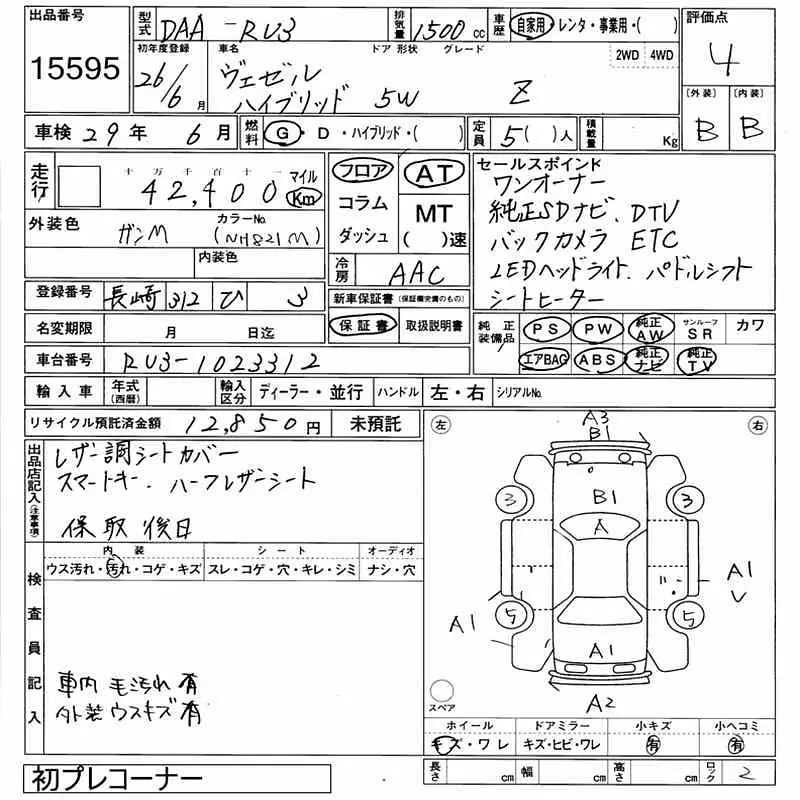 出品番号
15595
型式 DAA-RU3
排気量 1500 cc
車歴 自家用・レンタ・事業用・( )
評価点
4
初年度登録
26/6月
車名 ドア 形状 グレード
ヴェゼル
ハイブリッド 5W Z
2WD 4WD
[外装] [内装]
B B
車検 29年 6月
燃料 G・D・ハイブリッド・( )
定員 5( )人
積載量 Kg
走行
十万千百十一
42,400
マイル
Km
フロア AT
コラム MT
ダッシュ ( )速
セールスポイント
ワンオーナー
純正SDナビ、DTV
バックカメラ ETC
LEDヘッドライト、パドルシフト
シートヒーター
外装色 カラーNo.
ガンM (NH821M)
内装色
冷房 AAC
登録番号 長崎 312 ひ 3
新車保証書(保証欄完備のもの)
保証書 取扱説明書
名変期限 月 日迄
純正装備品
PS PW 純正AW サンルーフSR カワ
エアBAG ABS 純正ナビ 純正TV
車台番号 RU3-1023312
輸入車 年式(西暦) 輸入区分 ディーラー・並行 ハンドル 左・右 シリアルNo.
リサイクル預託済金額 12,850円 未預託
出品店記入(注意事項)
レザー調シートカバー
スマートキー、ハーフレザーシート
保取後日
左 右
A3
B1
B1
A
3 3
5 5
A1
A1
A1
A2
スペア
検査員記入
内装 シート オーディオ
ウス汚れ・汚れ・コゲ・キズ スレ・コゲ・穴・キレ・シミ ナシ・穴
車内 毛汚れ 有
外装 ウスキズ 有
ホイール ドアミラー 小キズ 小ヘコミ
キズ・ワレ キズ・ヒビ・ワレ 有 有
長さ cm 幅 cm 高さ cm ロック 2
初プレコーナー